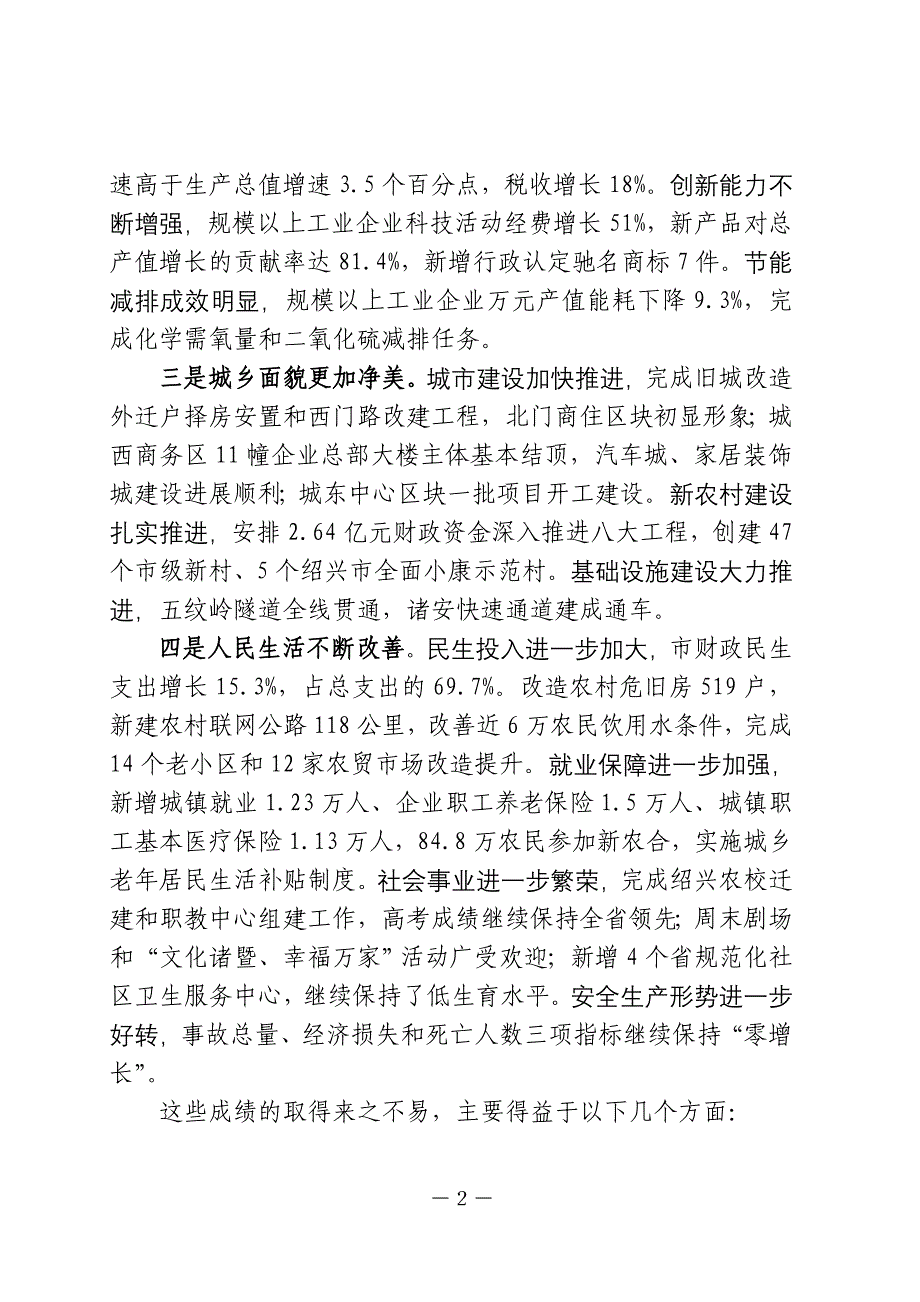 速高于生产总值增速 3.5 个百分点，税收增长 18%。创新能力不
断增强，规模以上工业企业科技活动经费增长 51%，新产品对总
产值增长的贡献率达 81.4%，新增行政认定驰名商标 7 件。节能
减排成效明显，规模以上工业企业万元产值能耗下降 9.3%，完
成化学需氧量和二氧化硫减排任务。
三是城乡面貌更加净美。城市建设加快推进，完成旧城改造
外迁户择房安置和西门路改建工程，北门商住区块初显形象；城
西商务区 11 幢企业总部大楼主体基本结顶，汽车城、家居装饰
城建设进展顺利；城东中心区块一批项目开工建设。新农村建设
扎实推进，安排 2.64 亿元财政资金深入推进八大工程，创建 47
个市级新村、5 个绍兴市全面小康示范村。基础设施建设大力推
进，五纹岭隧道全线贯通，诸安快速通道建成通车。
四是人民生活不断改善。民生投入进一步加大，市财政民生
支出增长 15.3%，占总支出的 69.7%。改造农村危旧房 519 户，
新建农村联网公路 118 公里，改善近 6 万农民饮用水条件，完成
14 个老小区和 12 家农贸市场改造提升。就业保障进一步加强，
新增城镇就业 1.23 万人、企业职工养老保险 1.5 万人、城镇职
工基本医疗保险 1.13 万人，84.8 万农民参加新农合，实施城乡
老年居民生活补贴制度。社会事业进一步繁荣，完成绍兴农校迁
建和职教中心组建工作，高考成绩继续保持全省领先；周末剧场
和“文化诸暨、幸福万家”活动广受欢迎；新增 4 个省规范化社
区卫生服务中心，继续保持了低生育水平。安全生产形势进一步
好转，事故总量、经济损失和死亡人数三项指标继续保持“零增
长”。
这些成绩的取得来之不易，主要得益于以下几个方面：
— 2 —